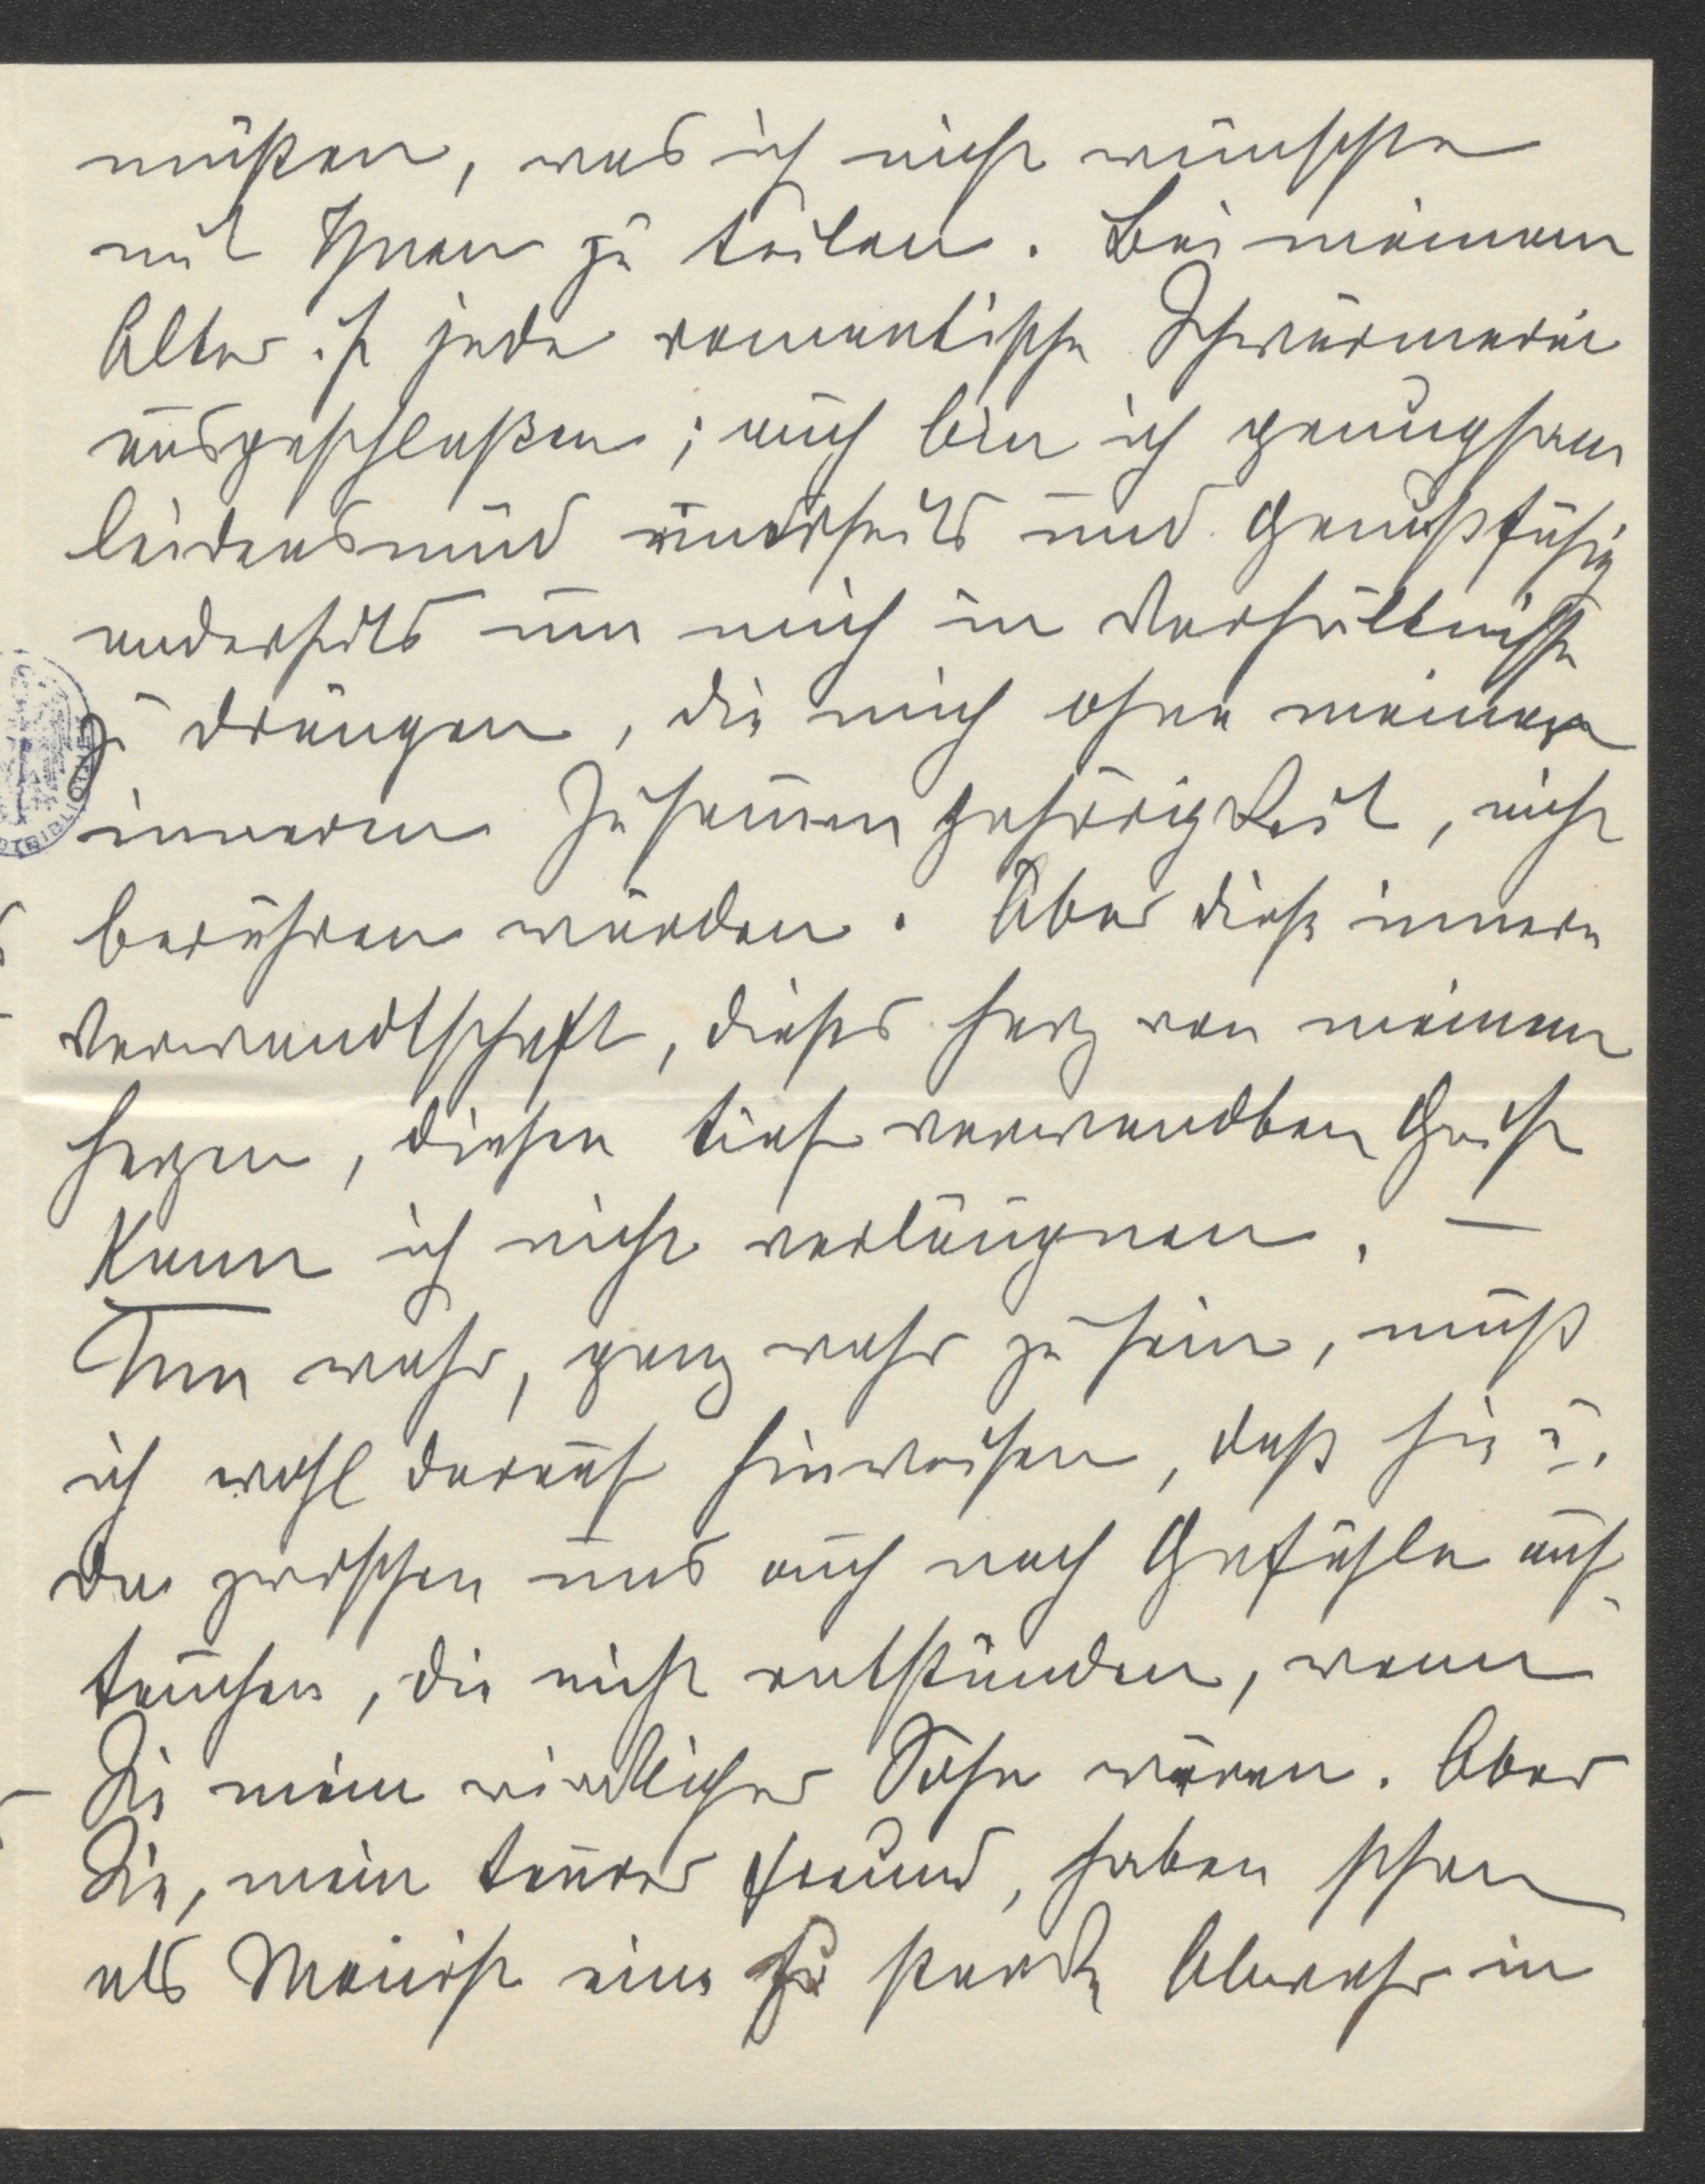 müßen, was ich nicht wünschte
mit Ihnen zu teilen. Bei meinem
Alter ist jede romantische Schwärmerei
ausgeschloßen; auch bin ich genugsam
leidensmüd einerseits und genußfähig
anderseits um mich in Verhältnisse
zu drängen, die mich ohne meinen
inneren Zusammengehörigkeit, nicht
berühren würden. Aber diese innere
Verwandtschaft, dieses Herz von meinem
Herzen, diesen tief verwandten Geist
kann ich nicht verläugnen. —
Um wahr, ganz wahr zu sein, muß
ich wohl darauf hinweisen, daß hie u.
da zwischen uns auch noch Gefühle auf-
tauchen, die nicht entstünden, wenn
Sie mein wirklicher Sohn wären. Aber
Sie, mein teurer Freund, haben schon
als Monist eine so starke Abwehr in